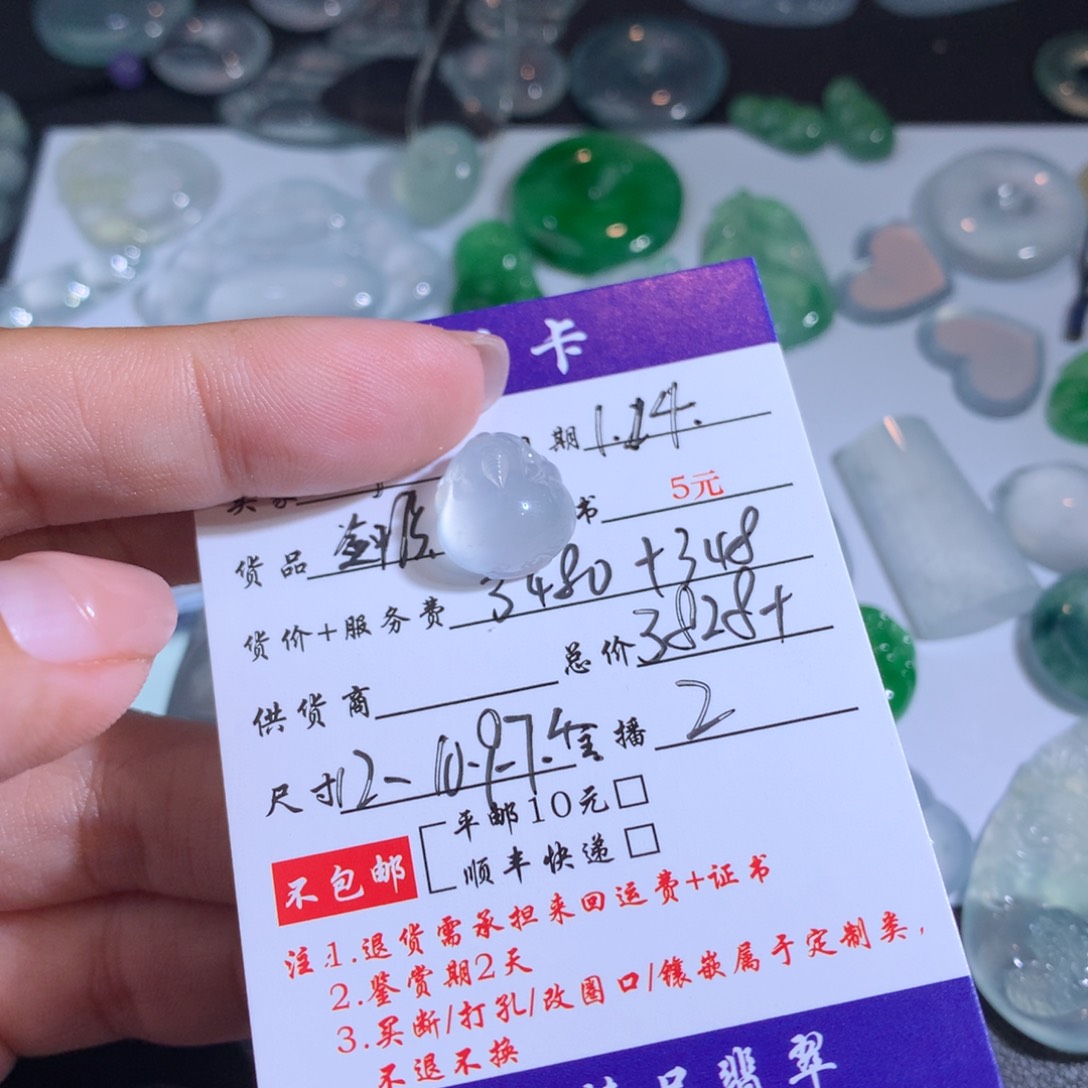 卡
期 1.14.
书 5元
货品
货价+服务费 3480+348
总价 3828+
供货商
尺寸 12-10.9-7.4 主播 2
平邮10元□
不包邮
顺丰快递□
注:1.退货需承担来回运费+证书
2.鉴赏期2天
3.买断/打孔/改圈口/镶嵌属于定制类,
不退不换
翡翠